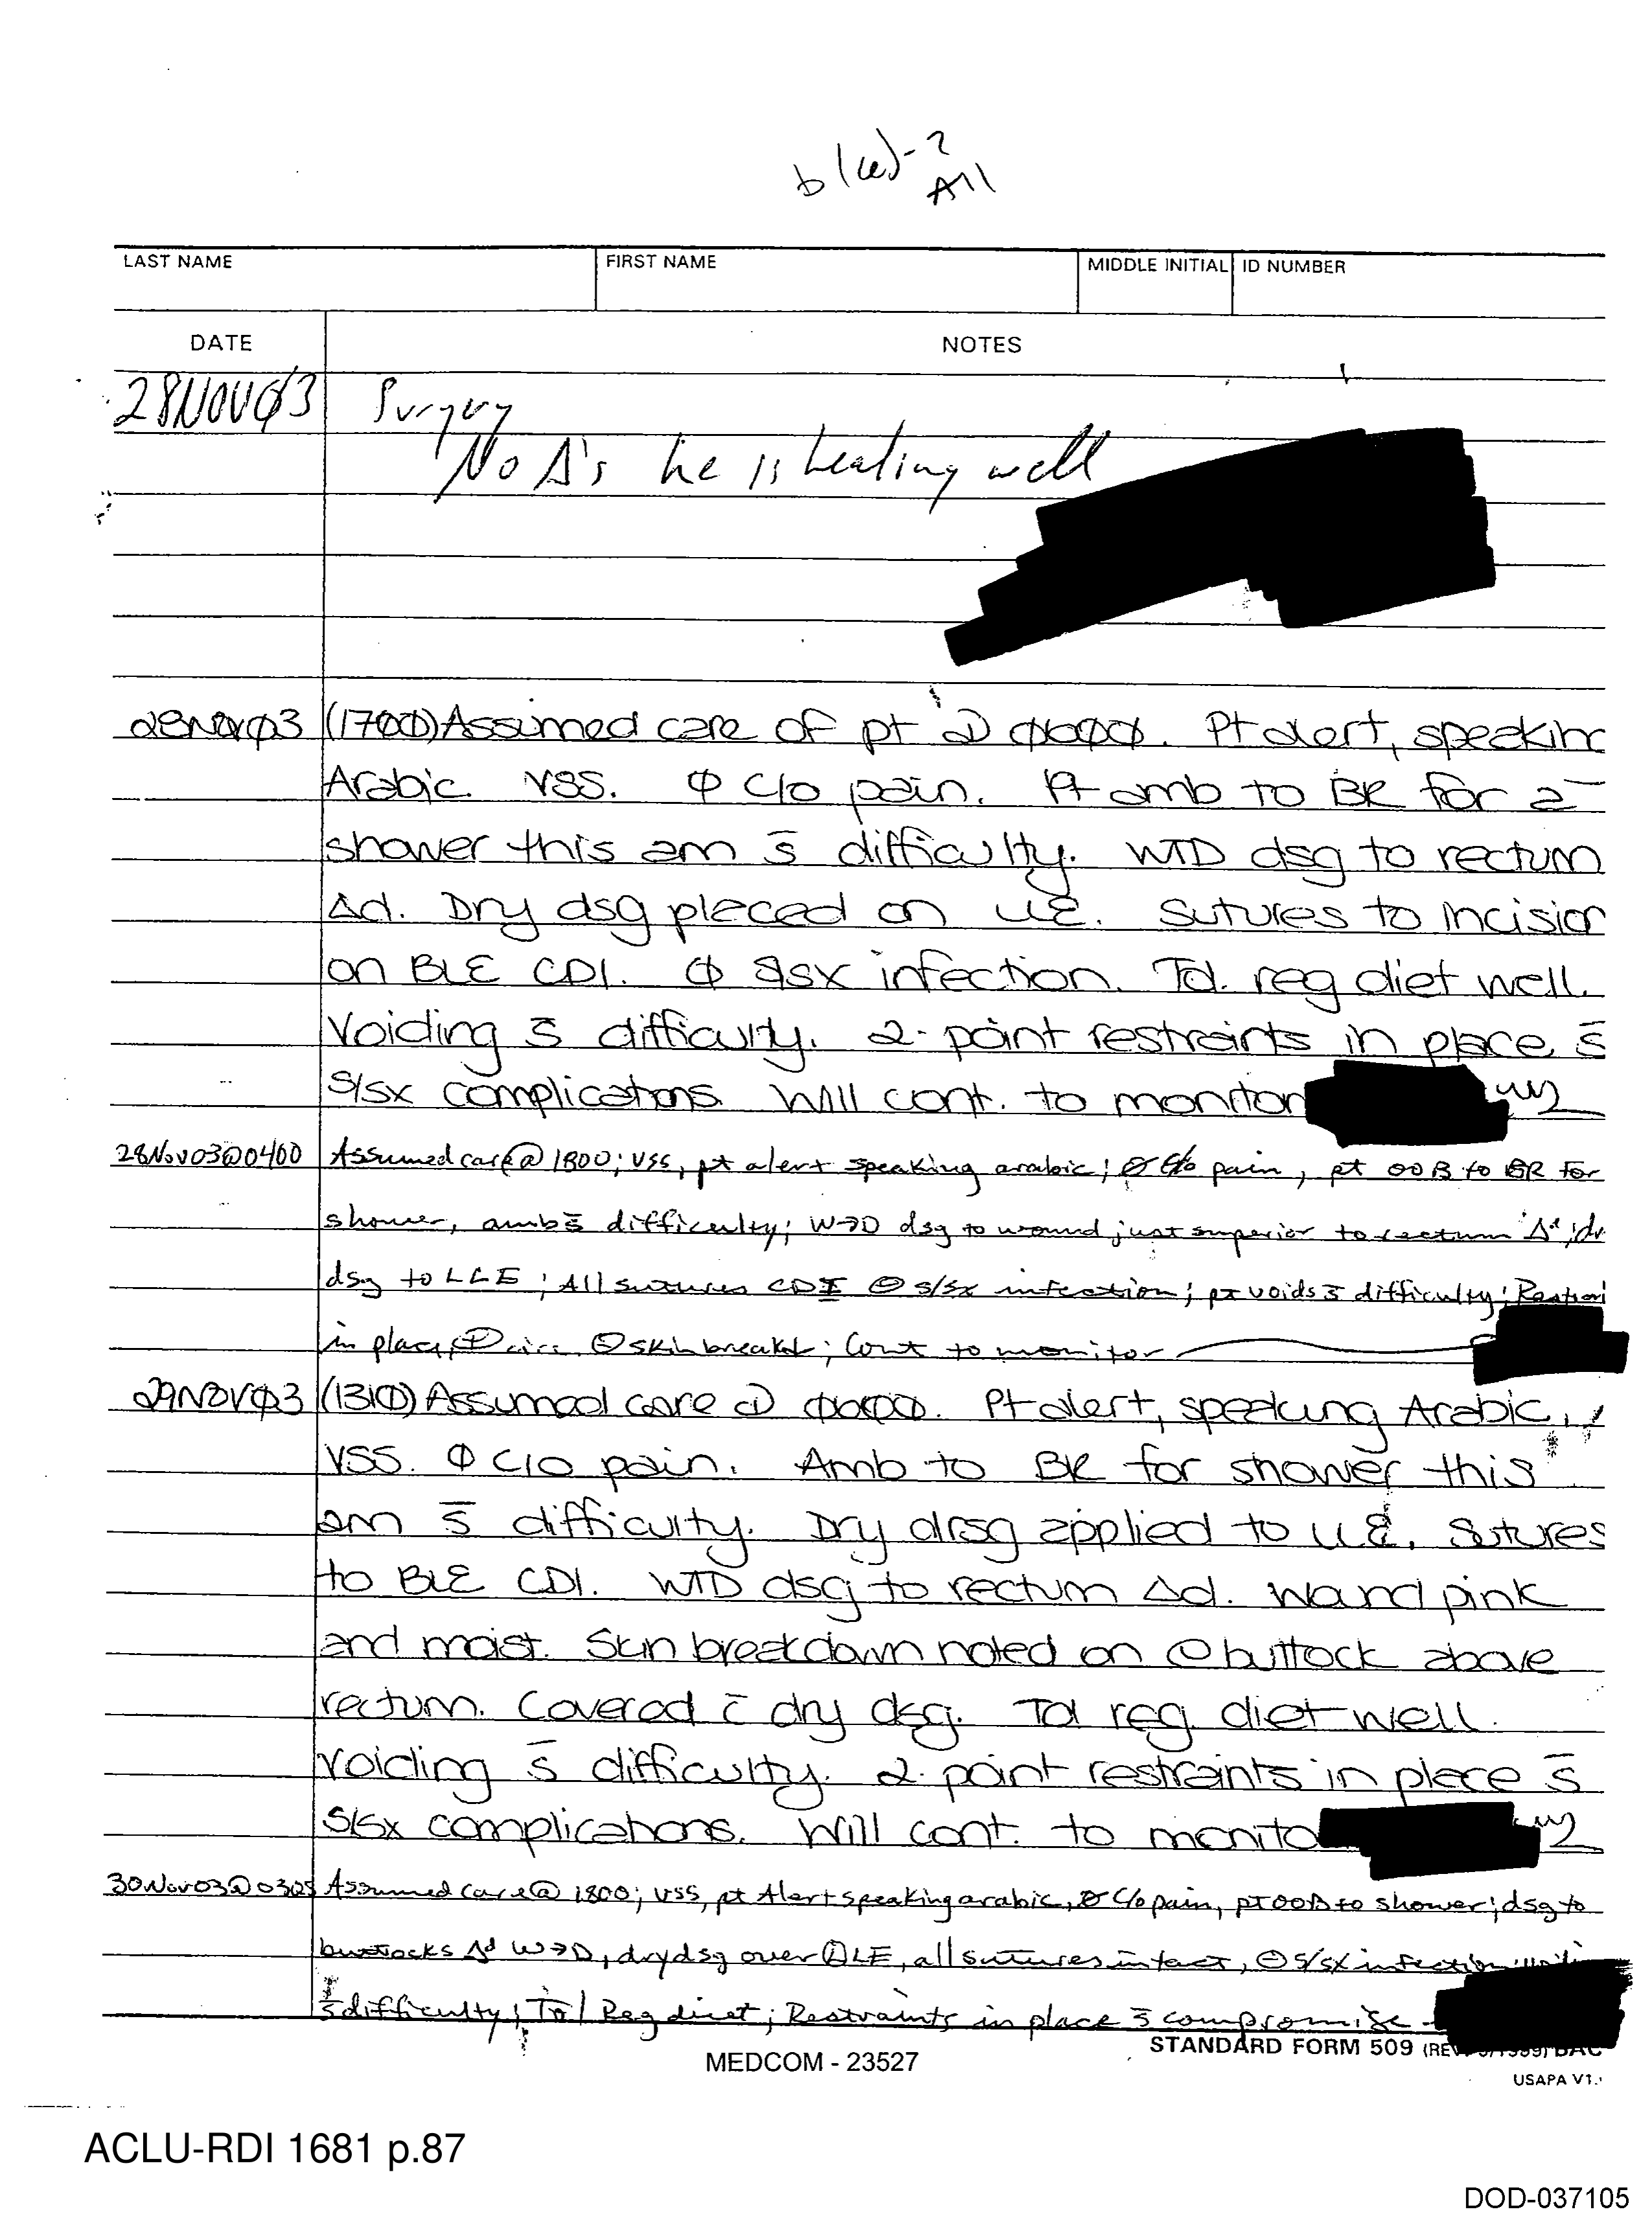 b(6)-2
All
LAST NAME FIRST NAME MIDDLE INITIAL ID NUMBER
DATE NOTES
28NOVØ3 Surgery
No Δ's he is healing well
28NOVØ3 (170Ø) Assumed care of pt @ Ø6ØØ. Pt alert, speaking
Arabic. VSS. Ø c/o pain. Pt amb to BR for a
shower this am s̄ difficulty. WTD dsg to rectum
Δd. Dry dsg placed on LLE. Sutures to incision
on BLE CDI. Ø s/sx infection. Tol. reg diet well.
Voiding s̄ difficulty. 2-point restraints in place s̄
s/sx complications. Will cont. to monitor
28Nov03@0400 Assumed care @ 1800; VSS, pt alert speaking arabic; Ø c/o pain, pt OOB to BR for
shower, amb s̄ difficulty; W→D dsg to wound just superior to rectum Δd;
dsg to LLE; All sutures CDI ⊖ s/sx infection; pt voids s̄ difficulty;
in place, ⊕ circ, ⊖ skin breakd; Cont to monitor
29NOVØ3 (131Ø) Assumed care @ Ø6ØØ. Pt alert, speaking Arabic,
VSS. Ø c/o pain. Amb to BR for shower this
am s̄ difficulty. Dry drsg applied to LLE. Sutures
to BLE CDI. WTD dsg to rectum Δd. Wound pink
and moist. Skin breakdown noted on buttock above
rectum. Covered c̄ dry dsg. Tol reg. diet well.
Voiding s̄ difficulty. 2-point restraints in place s̄
s/sx complications. Will cont. to monito
30Nov03@0325 Assumed care @ 1800; VSS, pt Alert speaking arabic, Ø c/o pain, pt OOB to shower; dsg to
buttocks Δd W→D, dry dsg over LE, all sutures intact, ⊖ s/sx infection
s̄ difficulty; Tol Reg diet; Restraints in place s̄ compromise
MEDCOM - 23527
STANDARD FORM 509
USAPA V1.
ACLU-RDI 1681 p.87
DOD-037105